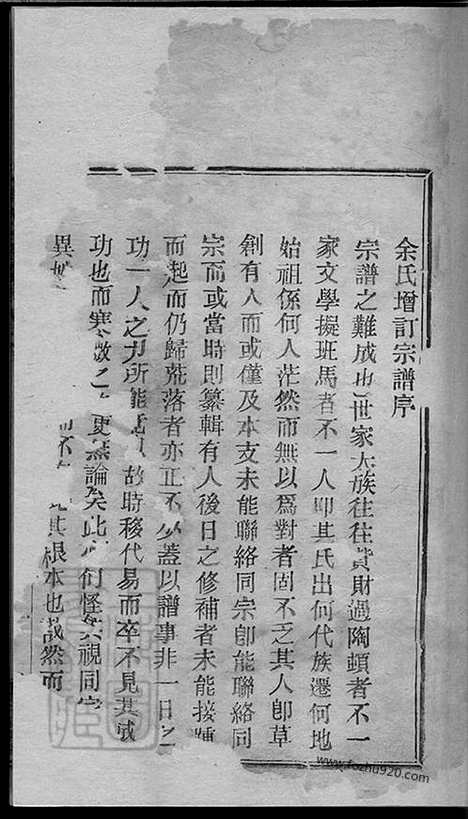 余氏增訂宗譜序
宗譜之難成也世家大族往往貲財過陶頓者不一
家文學擬班馬者不一人叩其氏出何代族遷何地
始祖係何人茫然而無以爲對者固不乏其人卽草
創有人而或僅及本支未能聯絡同宗卽能聯絡同
宗而或當時則纂輯有人後日之修補者未能接踵
而起而仍歸荒落者亦正不少蓋以譜事非一日之
功一人之力所能 故時移代易而卒不見其成
功也而寒 之 更無論矣此 何怪 視同宗
異 不 其根本也哉然而
www.fozhu920.com